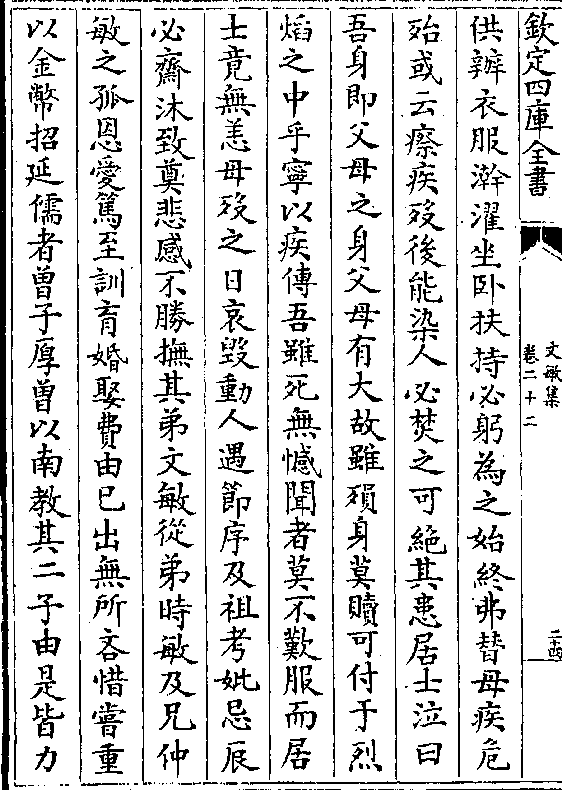 欽定四庫全書
文敏集
卷二十二
二十四
供辦衣服澣濯坐卧扶持必躬為之始終弗替母疾危
殆或云瘵疾歿後能染人必焚之可絶其患居士泣曰
吾身即父母之身父母有大故雖殞身莫贖可付于烈
熖之中乎寧以疾傳吾雖死無憾聞者莫不歎服而居
士竟無恙母歿之日哀毁動人遇節序及祖考妣忌辰
必齋沐致奠悲感不勝撫其弟文敏從弟時敏及兄仲
敏之孤恩愛篤至訓育婚娶費由已出無所吝惜嘗重
以金幣招延儒者曽子厚曽以南教其二子由是皆力